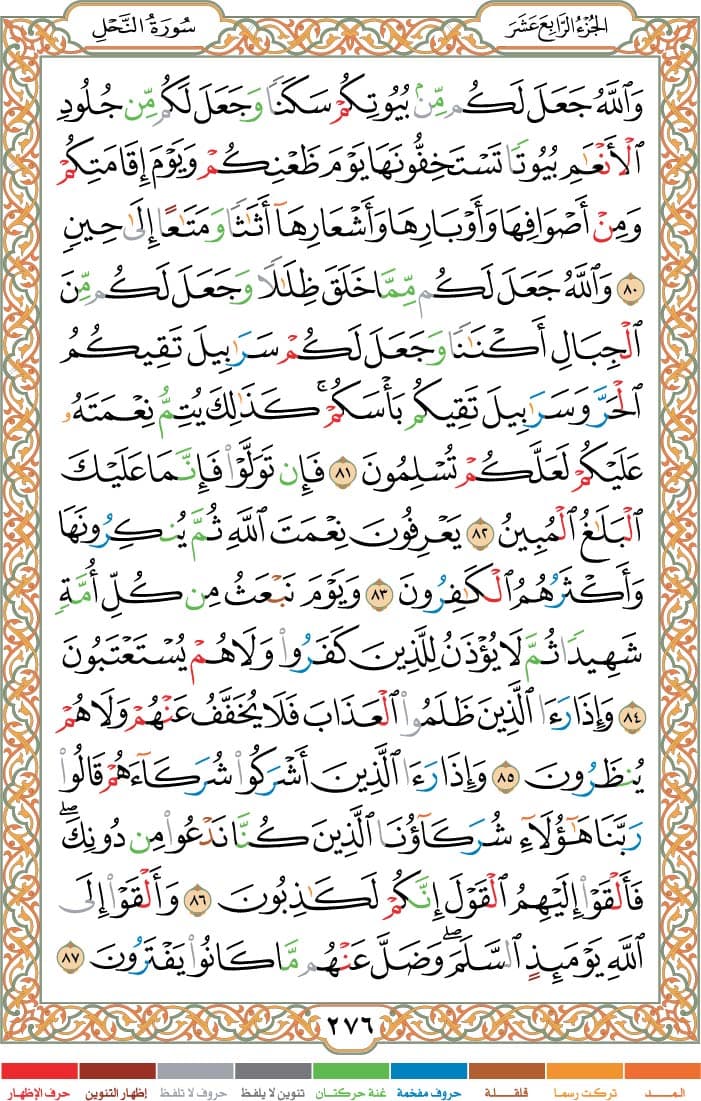 الجُزْءُ الرَّابِعَ عَشَرَ
سُورَةُ النَّحْلِ
وَاللَّهُ جَعَلَ لَكُم مِّنۢ بُيُوتِكُمْ سَكَنًا وَجَعَلَ لَكُم مِّن جُلُودِ
الْأَنْعَٰمِ بُيُوتًا تَسْتَخِفُّونَهَا يَوْمَ ظَعْنِكُمْ وَيَوْمَ إِقَامَتِكُمْ
وَمِنْ أَصْوَافِهَا وَأَوْبَارِهَا وَأَشْعَارِهَآ أَثَٰثًا وَمَتَٰعًا إِلَىٰ حِينٍ
٨٠ وَاللَّهُ جَعَلَ لَكُم مِّمَّا خَلَقَ ظِلَٰلًا وَجَعَلَ لَكُم مِّنَ
الْجِبَالِ أَكْنَٰنًا وَجَعَلَ لَكُمْ سَرَٰبِيلَ تَقِيكُمُ
الْحَرَّ وَسَرَٰبِيلَ تَقِيكُم بَأْسَكُمْ ۚ كَذَٰلِكَ يُتِمُّ نِعْمَتَهُۥ
عَلَيْكُمْ لَعَلَّكُمْ تُسْلِمُونَ ٨١ فَإِن تَوَلَّوْا۟ فَإِنَّمَا عَلَيْكَ
الْبَلَٰغُ الْمُبِينُ ٨٢ يَعْرِفُونَ نِعْمَتَ اللَّهِ ثُمَّ يُنكِرُونَهَا
وَأَكْثَرُهُمُ الْكَٰفِرُونَ ٨٣ وَيَوْمَ نَبْعَثُ مِن كُلِّ أُمَّةٍ
شَهِيدًا ثُمَّ لَا يُؤْذَنُ لِلَّذِينَ كَفَرُوا۟ وَلَا هُمْ يُسْتَعْتَبُونَ
٨٤ وَإِذَا رَءَا الَّذِينَ ظَلَمُوا۟ الْعَذَابَ فَلَا يُخَفَّفُ عَنْهُمْ وَلَا هُمْ
يُنظَرُونَ ٨٥ وَإِذَا رَءَا الَّذِينَ أَشْرَكُوا۟ شُرَكَآءَهُمْ قَالُوا۟
رَبَّنَا هَٰٓؤُلَآءِ شُرَكَآؤُنَا الَّذِينَ كُنَّا نَدْعُوا۟ مِن دُونِكَ ۖ
فَأَلْقَوْا۟ إِلَيْهِمُ الْقَوْلَ إِنَّكُمْ لَكَٰذِبُونَ ٨٦ وَأَلْقَوْا۟ إِلَى
اللَّهِ يَوْمَئِذٍ السَّلَمَ ۖ وَضَلَّ عَنْهُم مَّا كَانُوا۟ يَفْتَرُونَ ٨٧
٢٧٦
المـــد تركت رسما قلقـــلة حروف مفخمة غنة حركتـان تنوين لا يلفظ حروف لا تلفظ إظهار التنوين حرف الإظهار